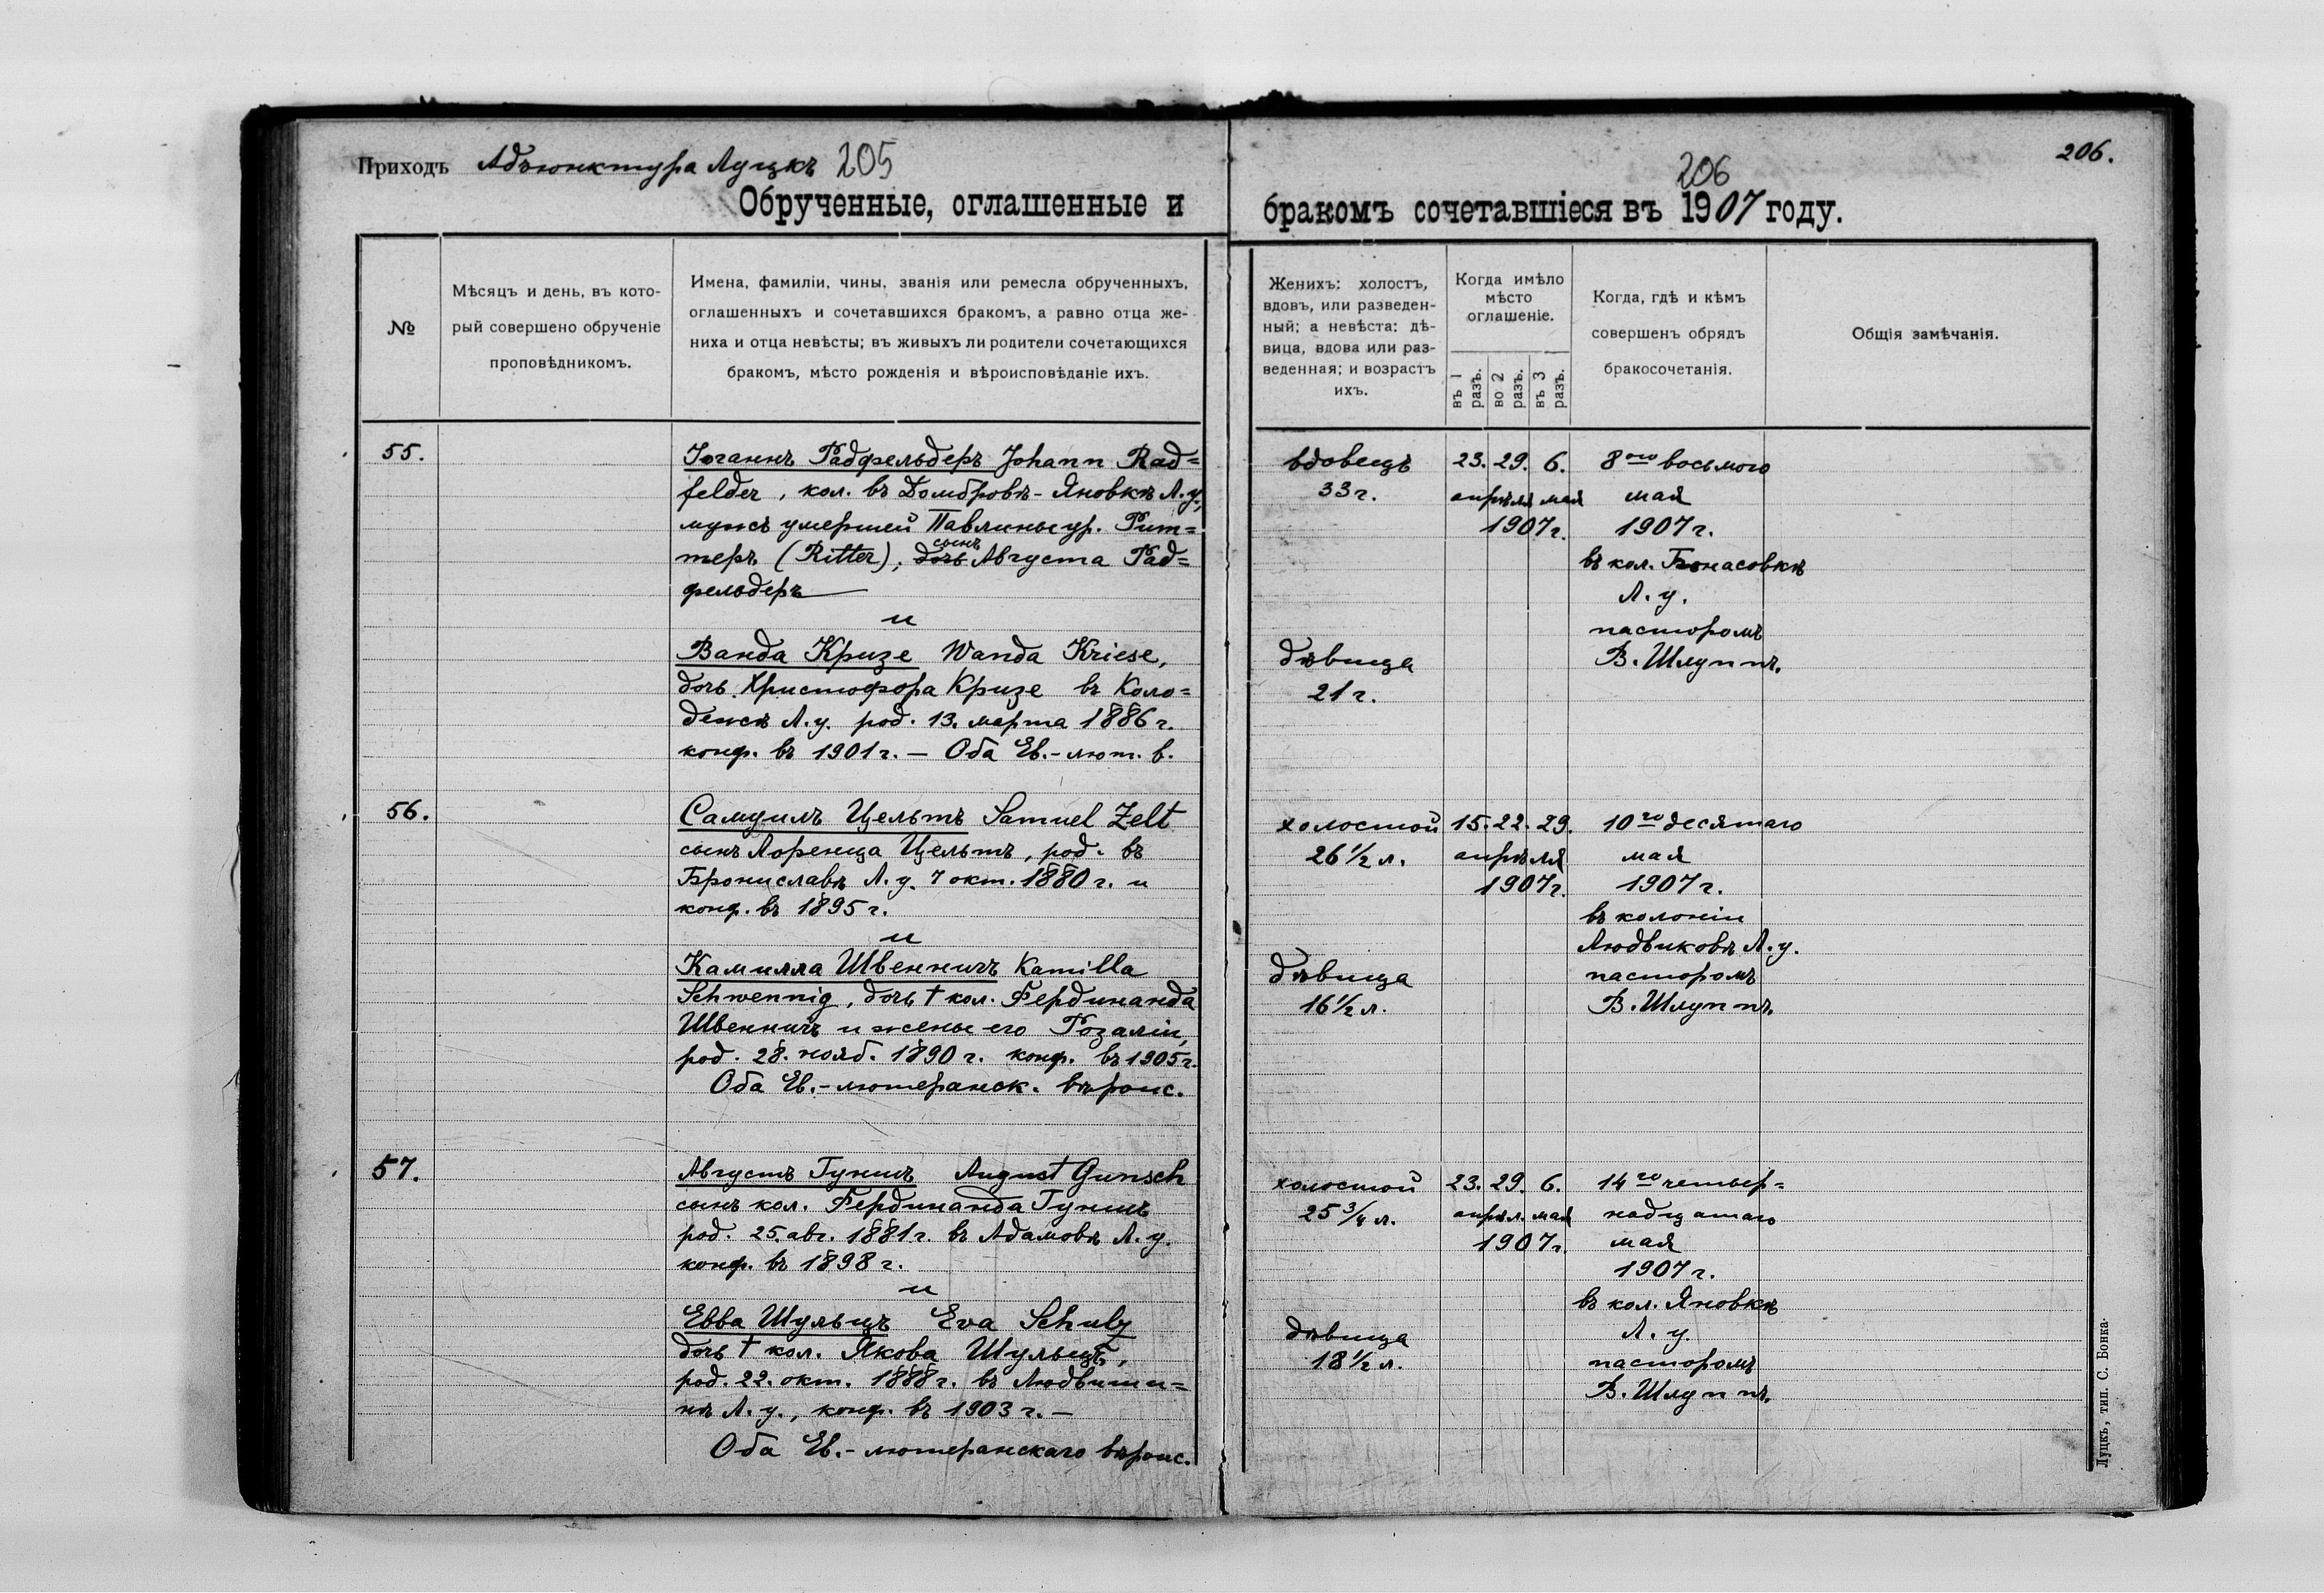 Приходъ Адъюнктура Луцкъ 205
Обрученные, оглашенные и
№
Мѣсяцъ и день, въ кото-
рый совершено обрученіе
проповѣдникомъ.
Имена, фамиліи, чины, званія или ремесла обрученныхъ,
оглашенныхъ и сочетавшихся бракомъ, а равно отца же-
ниха и отца невѣсты; въ живыхъ ли родители сочетающихся
бракомъ, мѣсто рожденія и вѣроисповѣданіе ихъ.
55.
Іоганнъ Радфельдеръ Johann Rad=
felder, кол. въ Домбровѣ-Яновкѣ Л. у.,
мужъ умершей Павлины ур. Рит=
теръ (Ritter), дочь сынъ Августа Рад=
фельдеръ
и
Ванда Кризе Wanda Kriese,
дочь Христофора Кризе въ Коло=
денскѣ Л. у. род. 13. марта 1886 г.
конф. въ 1901 г. — Оба Ев.-лют. в.
56.
Самуилъ Цельтъ Samuel Zelt
сынъ Лоренца Цельтъ, род. въ
Брониславѣ Л. у. 7 окт. 1880 г. и
конф. въ 1895 г.
и
Камилла Швеннигъ Kamilla
Schwennig, дочь † кол. Фердинанда
Швеннигъ и жены его Розаліи,
род. 28. нояб. 1890 г. конф. въ 1905 г.
Оба Ев.-лютеранск. вѣроис.
57.
Августъ Гуншъ August Gunsch
сынъ кол. Фердинанда Гуншъ
род. 25. авг. 1881 г. въ Адамовѣ Л. у.
конф. въ 1898 г.
и
Евва Шульцъ Eva Schulz
дочь † кол. Якова Шульцъ,
род. 22. окт. 1888 г. въ Людвиши=
нѣ Л. у., конф. въ 1903 г. —
Оба Ев.-лютеранскаго вѣроис.
206.
206
бракомъ сочетавшіеся въ 1907 году.
Женихъ: холостъ,
вдовъ, или разведен-
ный; а невѣста: дѣ-
вица, вдова или раз-
веденная; и возрастъ
ихъ.
Когда имѣло
мѣсто
оглашеніе.
въ 1 разъ.
во 2 разъ.
въ 3 разъ.
Когда, гдѣ и кѣмъ
совершенъ обрядъ
бракосочетанія.
Общія замѣчанія.
вдовецъ 23. 29. 6. 8ого восьмого
33 г. апрѣля мая мая
1907 г. 1907 г.
въ кол. Бонасовкѣ
Л. у.
пасторомъ
дѣвица В. Шлуппъ.
21 г.
холостой 15. 22. 29. 10го десятаго
26 1/2 л. апрѣля мая
1907 г. 1907 г.
въ колоніи
Людвиковѣ Л. у.
дѣвица пасторомъ
16 1/2 л. В. Шлуппъ.
холостой 23. 29. 6. 14го четыр=
25 3/4 л. апрѣл. мая надцатаго
1907 г. мая
1907 г.
въ кол. Яновкѣ
дѣвица Л. у.
18 1/2 л. пасторомъ
В. Шлуппъ.
Луцкъ, тип. С. Бонка.